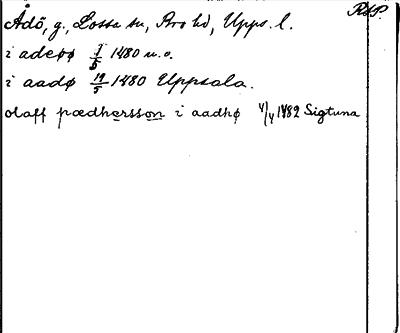 RAP.
Ådö, g., Lossa sn, Bro hd, Upps. l.
i adeøø 1/5 1480 u.o.
i aadø 19/5 1480 Uppsala.
olaff pædhersson i aadhø 4/4 1482 Sigtuna